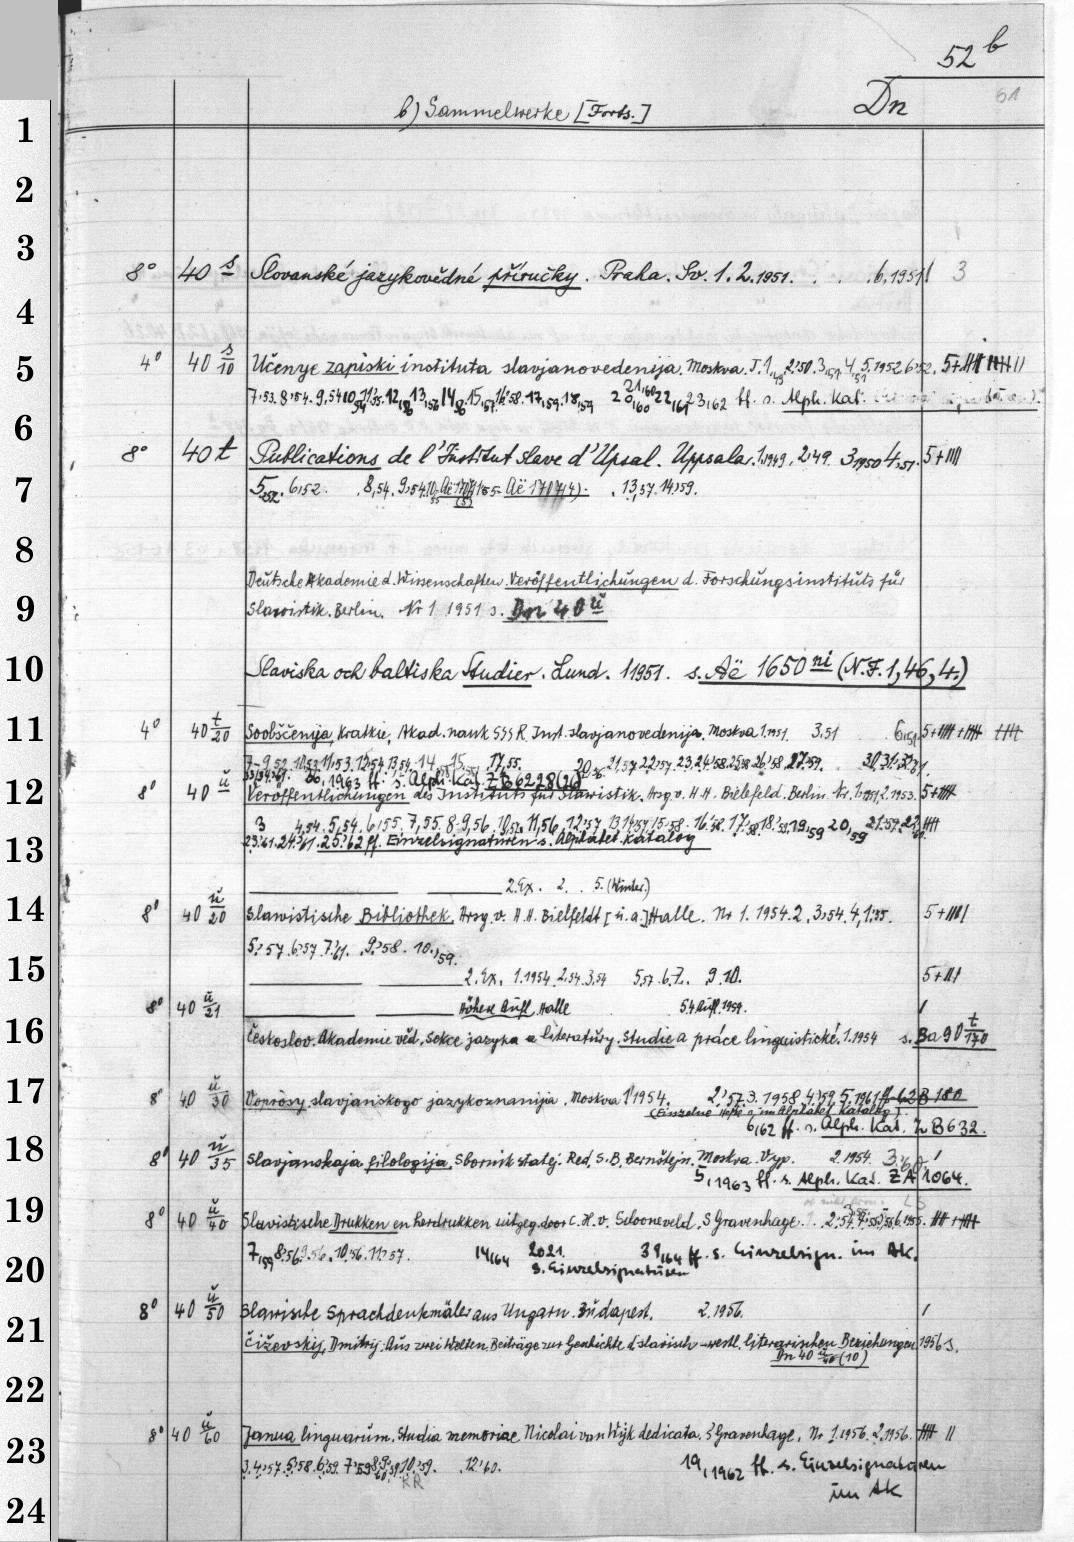 52 b
b) Sammelwerke [Forts.] Dn
61
1
2
3
8° 40 s Slovanské jazykovědné příručky. Praha. Sv. 1. 2. 1951. . . .6.1951 3
4
5 4° 40 s/10 Učenye zapiski instituta slavjanovedenija. Moskva. T. 1,49 2,50. 3,51 4,51 5.1952 6,52. 5+
7,53. 8,54. 9,54 12,56 13,56 14,56 15,57. 16,58. 17,59. 18,59 20,60 21,60 22,61 23,62 ff. s. Alph. Kat.
6
8° 40 t Publications de l'Institut slave d'Upsal. Uppsala. 1,1949, 2,49. 3,1950 4,51. 5+
7 5,52. 6,52. .8,54. 9,54. Aë 1707(4). . 13,57. 14,59.
8
Deutsche Akademie d. Wissenschaften. Veröffentlichungen d. Forschungsinstituts für
9 Slawistik. Berlin. Nr 1 1951 s. Dn 40 u
10 Slaviska och baltiska Studier. Lund. 1 1951. s. Aë 1650 ni (N.F. 1, 46, 4.)
11 4° 40 t/20 Soobščenija, Kratkie, Akad. nauk SSSR. Inst. slavjanovedenija. Moskva 1.1951. 3.51 6,51 5+
1963 ff. s. Alph. Kat. ZB 6228(20)
12 8° 40 u Veröffentlichungen des Instituts für Slawistik. Hrsg. v. H.H. Bielefeld. Berlin. Nr. 1,1951, 2.1953. 5+
3 4,54. 5,54. 6,55. 7,55. 8-9,56. 11,56. 12,57 19,59 20,59
13 23,61. 24,61. 25,62 ff. Einzelsignaturen s. Alphabet. Katalog
2. Ex. 2. . 5. (Winter.)
14 8° 40 u/20 Slawistische Bibliothek. Hrsg. v. H.H. Bielfeldt [u.a.] Halle. Nr 1. 1954. 2, 3,54. 4, 5+
5,57. 6,57 7,61. .9,58. 10.,59.
15 2. Ex. 1.1954 2.54 3,54 5,57. 6.7. 9. 10. 5+
8° 40 u/21 Aufl. Halle 5.Aufl. 1954.
16 Českoslov. Akademie věd. Sekce jazyka a literatury. Studie a práce linguistické. 1.1954 s. Ba 90 t/170
17 8° 40 u/30 Voprosy slavjanskogo jazykoznanija. Moskva 1 1954. 2,57. 3. 1958 4,59. 5.1961 ff 62 B 180
(Einzelne Hefte s. im Alphabet. Katalog).
6,62 ff. s. Alph. Kat. Z B 632.
18 8° 40 u/35 Slavjanskaja filologija. Sbornik statej. Red. S.B. Bernštejn. Moskva. Vyp. 2. 1954. 3,60
5,1963 ff. s. Alph. Kat. ZA 1064.
19 8° 40 u/40 Slavistische Drukken en herdrukken uitgeg. door C.H. v. Schooneveld. S Gravenhage.
7,59 8,56 9,56. 10,56. 11,57. 14,64 20 21. 39,64 ff. s. Einzelsign. im AK.
20 s. Einzelsignaturen
8° 40 u/50 Slawische Sprachdenkmäler aus Ungarn. Budapest. 2. 1956.
21 Čiževskij, Dmitrij: Aus zwei Welten. Beiträge zur Geschichte d. slavisch-westl. literarischen Beziehungen 1956 s.
Dn 40 u/40 (10)
22
8° 40 u/60 Janua linguarum. Studia memoriae Nicolai van Wijk dedicata. S'Gravenhage. Nr 1.1956. 2,1956.
23 3. 4,57. 5,58. 6,59. 7,59 8,59 .12,60. 19,1962 ff. s. Einzelsignaturen
im AK
24